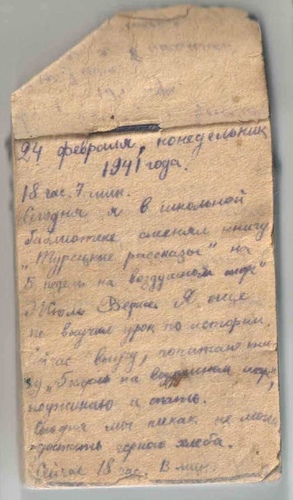 24 февраля, понедельник
1941 года.
18 час. 7 мин.
Сегодня я в школьной
библиотеке сменял книгу
„Турецкие рассказы" на
5 недель на воздушном шаре"
Жюль Верна. Я еще
не выучил урок по истории.
Сейчас выучу, почитаю кни-
гу „5 недель на воздушном шаре",
поужинаю и спать.
Сегодня мы никак не могли
достать черного хлеба.
Сейчас 18 час. 13 мин.